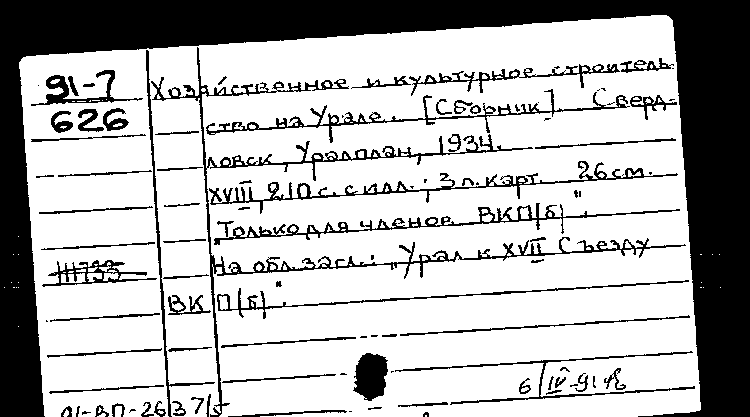 91-7 Хозяйственное и культурное строитель-
626 ство на Урале. [Сборник]. Сверд-
ловск, Уралплан, 1934.
XVIII, 210 с. с илл.; 3 л. карт. 26 см.
"Только для членов ВКП(б)".
На обл. загл.: "Урал к XVII Съезду
ВКП(б)".
6/IV-91
91-ВП-2637/5